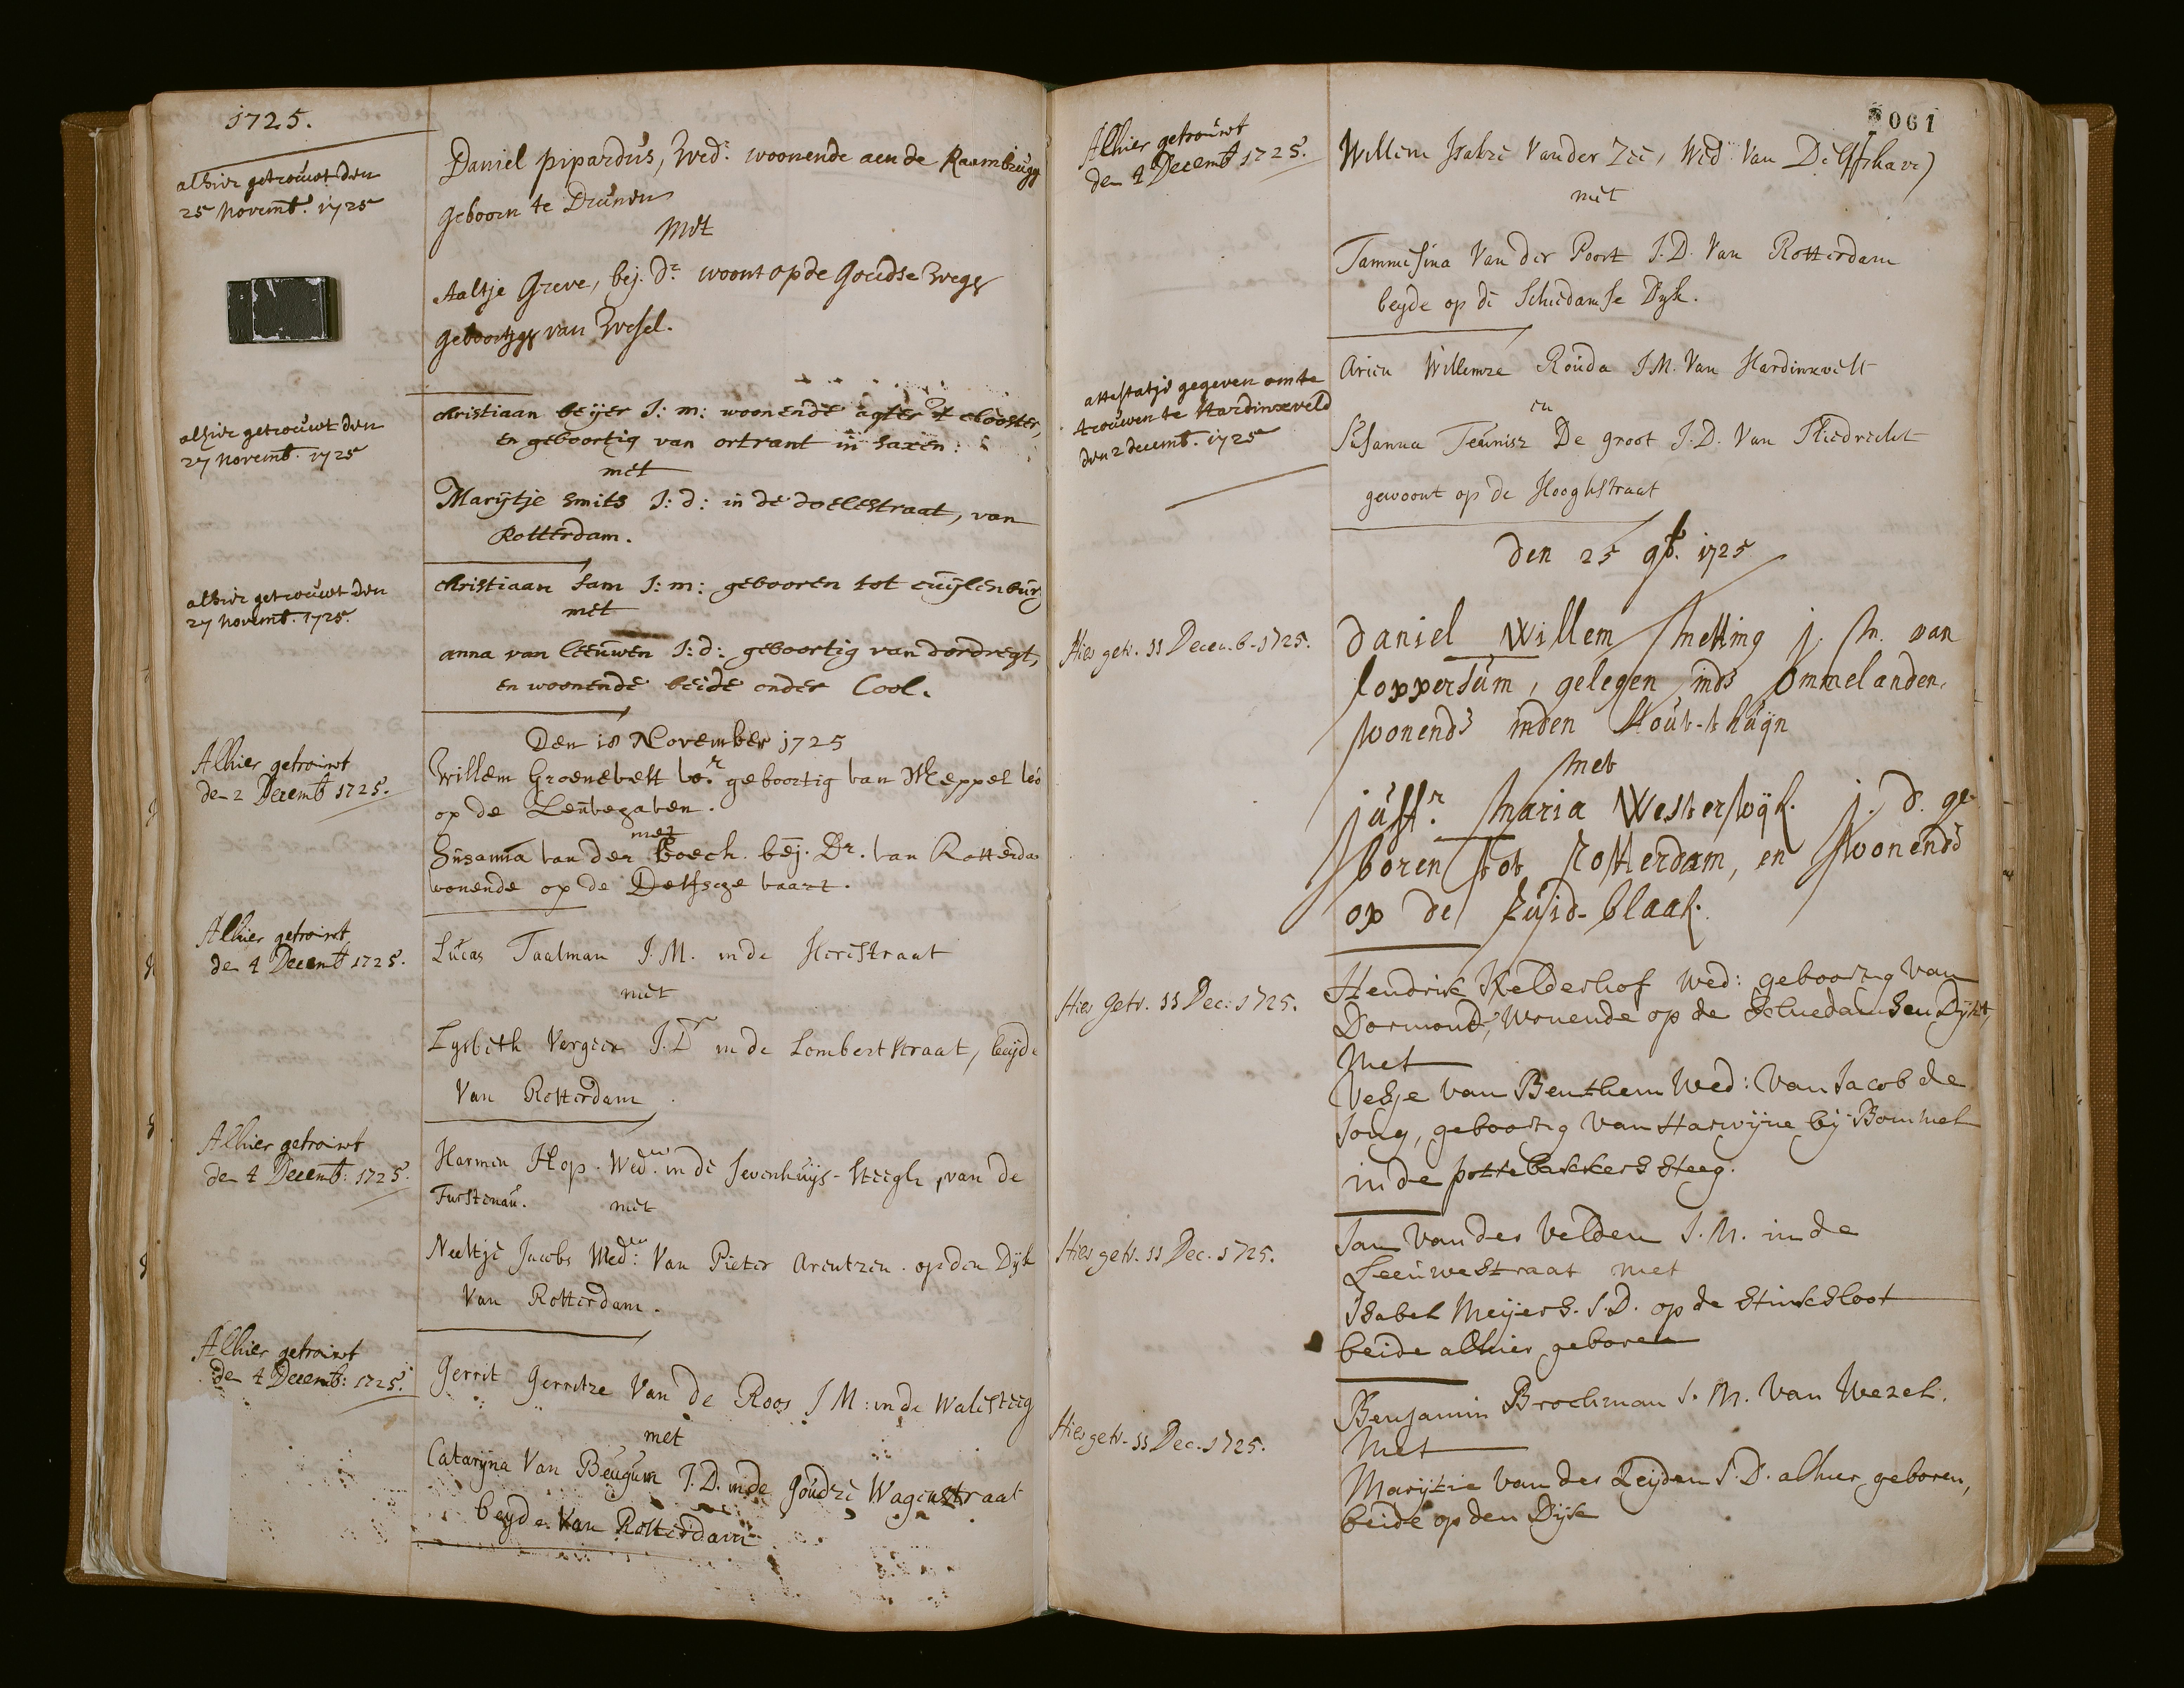 1725.
alhier getrouwt den
25 novemb. 1725
Daniel pipardus, Wedr. woonende aen de Raambrugg
geboorn te Drunen
Met
Aaltje Greve, bej. Dr. woont op de Goudse Wegh
geboortigh van Wesel.
alhier getrouwt den
27 novemb. 1725
christiaan beijer J: m: woonende agter t clooster,
en geboortig van ortrant in saxen:
met
Marijtje smits J: d: in de doelestraat, van
Rotterdam.
alhier getrouwt den
27 novemb. 1725.
christiaan sam J: m: gebooren tot cuijlenburg
met
anna van leeuwen J: d: geboortig van dordregt,
en woonende beide onder Cool.
Den 18 November 1725
Alhier getrouwt
den 2 Decemb 1725.
Willem Groenevelt wr. geboortig van Meppel wo
op de Leuvehaven.
met
Susanna van der hoech. bej. Dr. van Rotterdam
wonende op de Delfsche vaart.
Alhier getrouwt
den 4 Decemb 1725.
Lucas Taalman J.M. in de Herestraat
met
Lysbeth Vergeer J.Dr in de Lombertstraat, beijde
Van Rotterdam.
Alhier getrouwt
den 4 Decemb: 1725.
Harmen Hop. Wedr. in de Sevenhuijs-steegh, van de
Furstenau.
met
Neeltje Jacobs Wede: Van Pieter Arentzen. op den Dijk
Van Rotterdam.
Alhier getrouwt
den 4 Decemb: 1725.
Gerrit Gerritze Van de Roos J M: in de Walesteeg
met
Cataryna Van Beugum J.D. in de Goudze Wagenstraat
beyde Van Rotterdam
061
Alhier getrouwt
den 4 Decemb 1725.
Willem Isakze Vander Zee, Wedr Van Delfshave)
met
Tammesina Van der Poort J.D. Van Rotterdam
beyde op de Schiedamse Dyk.
attestatje gegeven om te
trouwen te Hardinxveld
den 2 decemb. 1725
Arien Willemze Rouda J M. Van Hardinxvelt
en
Susanna Teunisz De groot J.D. Van Sliedrecht
gewoont op de Hooghstraat
den 25 9b. 1725
Hier getr. 11 Decemb. 1725.
Daniel Willem Metting j. m. van
loppersum, gelegen inde Ommelanden,
wonende inden Hout-thuijn
Met
juffr. Maria Westerwijk. j. d. ge-
boren tot Rotterdam, en wonende
op de Zuijd-blaak.
Hier Getr. 11 Dec. 1725.
Hendrik Kelderhof Wed: geboortig van
Dormond, Wonende op de Schiedamsen Dijk,
Met
Vesje van Benthem Wed: Van Jacob de
Jong, geboortig van Harwijne bij Bommel
in de pottebakkers steeg.
Hier getr. 11 Dec. 1725.
Jan van der Velden J. M. in de
Leeuwestraat met
Isabel Meijers. J.D. op de stinksloot
beide alhier geboren
Hier getr. 11 Dec. 1725.
Benjamin Brockman J. M. van Wezel.
Met
Marijtie van der Leijden J.D. alhier geboren,
beide op den Dijk